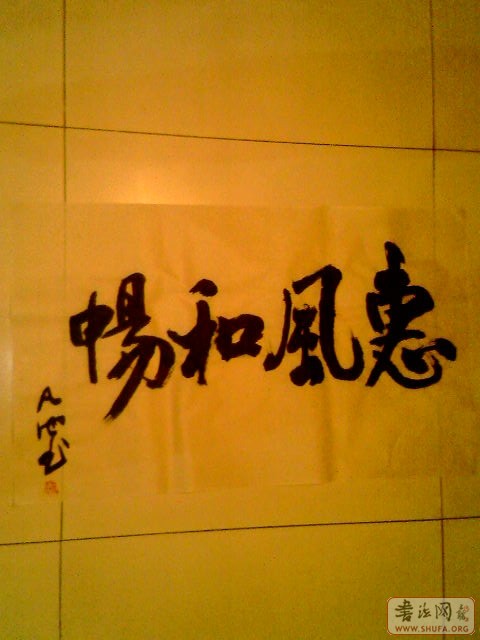 惠風和暢
書法网
WWW.SHUFA.ORG